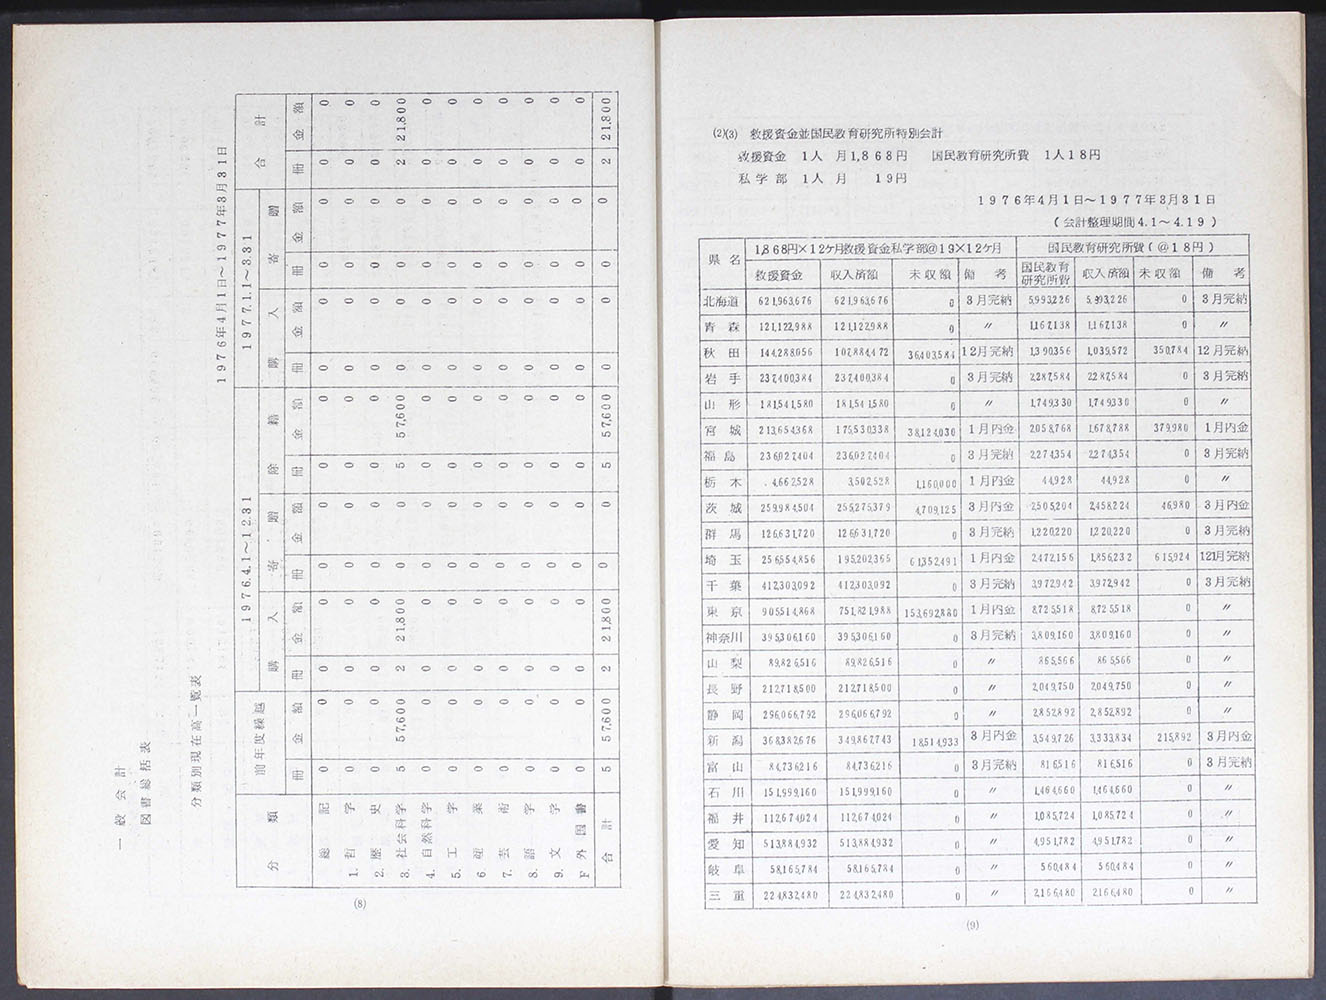 一般会計
図書総括表
分類別現在高一覧表
1976年4月1日～1977年3月31日
分類 前年度繰越 1976.4.1～12.31 1977.1.1～3.31 合計
購入 寄贈 除籍 購入 寄贈
冊 金額 冊 金額 冊 金額 冊 金額 冊 金額 冊 金額 冊 金額
総記 0 0 0 0 0 0 0 0 0 0 0 0 0 0
1. 哲学 0 0 0 0 0 0 0 0 0 0 0 0 0 0
2. 歴史 0 0 0 0 0 0 0 0 0 0 0 0 0 0
3. 社会科学 5 57,600 2 21,800 0 0 5 57,600 0 0 0 0 2 21,800
4. 自然科学 0 0 0 0 0 0 0 0 0 0 0 0 0 0
5. 工学 0 0 0 0 0 0 0 0 0 0 0 0 0 0
6 産業 0 0 0 0 0 0 0 0 0 0 0 0 0 0
7. 芸術 0 0 0 0 0 0 0 0 0 0 0 0 0 0
8. 語学 0 0 0 0 0 0 0 0 0 0 0 0 0 0
9. 文学 0 0 0 0 0 0 0 0 0 0 0 0 0 0
F 外国書 0 0 0 0 0 0 0 0 0 0 0 0 0 0
合計 5 57,600 2 21,800 0 0 5 57,600 0 0 0 0 2 21,800
(8)
(2)(3) 救援資金並国民教育研究所特別会計
救援資金 1人 月1,868円 国民教育研究所費 1人18円
私学部 1人 月 19円
1976年4月1日～1977年3月31日
(会計整理期間4.1～4.19)
県名 1,868円×12ケ月救援資金私学部@19×12ケ月 国民教育研究所費(@18円)
救援資金 収入済額 未収額 備考 国民教育研究所費 収入済額 未収額 備考
北海道 621,963,676 621,963,676 0 3月完納 5,993,226 5,993,226 0 3月完納
青森 121,122,988 121,122,988 0 〃 1,167,138 1,167,138 0 〃
秋田 144,288,056 107,884,472 36,403,584 12月完納 1,390,356 1,039,572 350,784 12月完納
岩手 237,400,384 237,400,384 0 3月完納 2,287,584 2,287,584 0 3月完納
山形 181,541,580 181,541,580 0 〃 1,749,330 1,749,330 0 〃
宮城 213,654,368 175,530,338 38,124,030 1月内金 2,058,768 1,678,788 379,980 1月内金
福島 236,027,404 236,027,404 0 3月完納 2,274,354 2,274,354 0 3月完納
栃木 4,662,528 3,502,528 1,160,000 1月内金 44,928 44,928 0 〃
茨城 259,984,504 255,275,379 4,709,125 3月内金 2,505,204 2,458,224 46,980 3月内金
群馬 126,631,720 126,631,720 0 3月完納 1,220,220 1,220,220 0 3月完納
埼玉 256,554,856 195,202,365 61,352,491 1月内金 2,472,156 1,856,232 615,924 121月完納
千葉 412,303,092 412,303,092 0 3月完納 3,972,942 3,972,942 0 3月完納
東京 905,514,868 751,821,988 153,692,880 1月内金 8,725,518 8,725,518 0 〃
神奈川 395,306,160 395,306,160 0 3月完納 3,809,160 3,809,160 0 〃
山梨 89,826,516 89,826,516 0 〃 865,566 865,566 0 〃
長野 212,718,500 212,718,500 0 〃 2,049,750 2,049,750 0 〃
静岡 296,066,792 296,066,792 0 〃 2,852,892 2,852,892 0 〃
新潟 368,382,676 349,867,743 18,514,933 3月内金 3,549,726 3,333,834 215,892 3月内金
富山 84,736,216 84,736,216 0 3月完納 816,516 816,516 0 3月完納
石川 151,999,160 151,999,160 0 〃 1,464,660 1,464,660 0 〃
福井 112,674,024 112,674,024 0 〃 1,085,724 1,085,724 0 〃
愛知 513,884,932 513,884,932 0 〃 4,951,782 4,951,782 0 〃
岐阜 58,165,784 58,165,784 0 〃 560,484 560,484 0 〃
三重 224,832,480 224,832,480 0 〃 2,166,480 2,166,480 0 〃
(9)